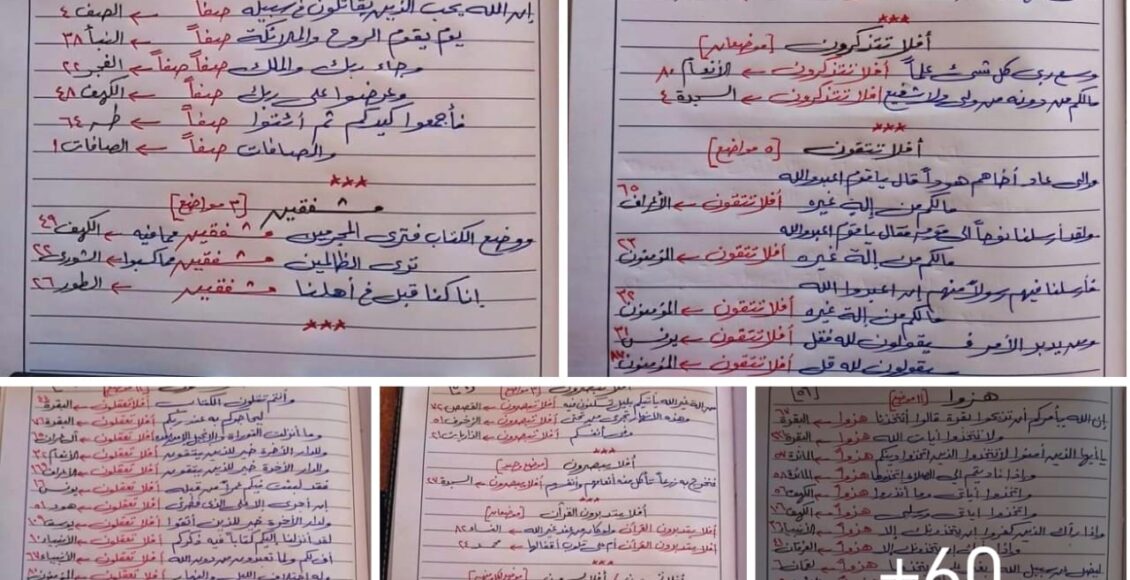 إن الله يحب الذين يقاتلون في سبيله صفاً ← الصف ٤
يوم يقوم الروح والملائكة صفاً ← النبأ ٣٨
وجاء ربك والملك صفاً صفاً ← الفجر ٢٢
وعرضوا على ربك صفاً ← الكهف ٤٨
فأجمعوا كيدكم ثم ائتوا صفاً ← طه ٦٤
والصافات صفاً ← الصافات ١
***
مشفقين [٣ مواضع]
ووضع الكتاب فترى المجرمين مشفقين مما فيه ← الكهف ٤٩
ترى الظالمين مشفقين مما كسبوا ← الشورى ٢٢
إنا كنا قبل في أهلنا مشفقين ← الطور ٢٦
***
***
أفلا تتذكرون [موضعان]
وسع ربي كل شيء علماً أفلا تتذكرون ← الأنعام ٨٠
مالكم من دونه من ولي ولا شفيع أفلا تتذكرون ← السجدة ٤
***
أفلا تتقون [٥ مواضع]
وإلى عاد أخاهم هوداً قال ياقوم اعبدوا الله
مالكم من إله غيره أفلا تتقون ← الأعراف ٦٥
ولقد أرسلنا نوحاً إلى قومه فقال ياقوم اعبدوا الله
مالكم من إله غيره أفلا تتقون ← المؤمنون ٢٣
فأرسلنا فيهم رسولاً منهم إن اعبدوا الله
مالكم من إله غيره أفلا تتقون ← المؤمنون ٣٢
ومن يدبر الأمر فسيقولون لله فقل أفلا تتقون ← يونس ٣١
سيقولون لله قل أفلا تتقون ← المؤمنون ٨٧
وأنتم تتلون الكتاب أفلا تعقلون ← البقرة ٤٤
ليحاجوكم به عند ربكم أفلا تعقلون ← البقرة ٧٦
وما أنزلت التوراة والإنجيل أفلا تعقلون ← آل عمران ٦٥
وللدار الآخرة خير للذين يتقون أفلا تعقلون ← الأنعام ٣٢
والدار الآخرة خير للذين يتقون أفلا تعقلون ← الأعراف ١٦٩
فقد لبثت فيكم عمراً من قبله أفلا تعقلون ← يونس ١٦
إن أجري إلا على الذي فطرني أفلا تعقلون ← هود ٥١
ولدار الآخرة خير للذين اتقوا أفلا تعقلون ← يوسف ١٠٩
لقد أنزلنا إليكم كتاباً فيه ذكركم أفلا تعقلون ← الأنبياء ١٠
أف لكم ولما تعبدون من دون الله أفلا تعقلون ← الأنبياء ٦٧
وله اختلاف الليل والنهار أفلا تعقلون ← المؤمنون ٨٠
من إله غير الله يأتيكم بليل تسكنون فيه أفلا تبصرون ← القصص ٧٢
وهذه الأنهار تجري من تحتي أفلا تبصرون ← الزخرف ٥١
وفي أنفسكم أفلا تبصرون ← الذاريات ٢١
***
أفلا يبصرون [موضع وحيد]
فنخرج به زرعاً تأكل منه أنعامهم وأنفسهم أفلا يبصرون ← السجدة ٢٧
***
أفلا يتدبرون القرآن [موضعان]
أفلا يتدبرون القرآن ولو كان من عند غير الله ← النساء ٨٢
أفلا يتدبرون القرآن أم على قلوب أقفالها ← محمد ٢٤
***
هزوا [١١ موضع]
إن الله يأمركم أن تذبحوا بقرة قالوا أتتخذنا هزوا ← البقرة ٦٧
ولا تتخذوا آيات الله هزوا ← البقرة ٢٣١
يا أيها الذين آمنوا لا تتخذوا الذين اتخذوا دينكم هزوا ← المائدة ٥٧
وإذا ناديتم إلى الصلاة اتخذوها هزوا ← المائدة ٥٨
واتخذوا آياتي وما أنذروا هزوا ← الكهف ٥٦
واتخذوا آياتي ورسلي هزوا ← الكهف ١٠٦
وإذا رآك الذين كفروا إن يتخذونك إلا هزوا ← الأنبياء ٣٦
وإذا رأوك إن يتخذونك إلا هزوا ← الفرقان ٤١
ليضل عن سبيل الله لقمان ٦
+60